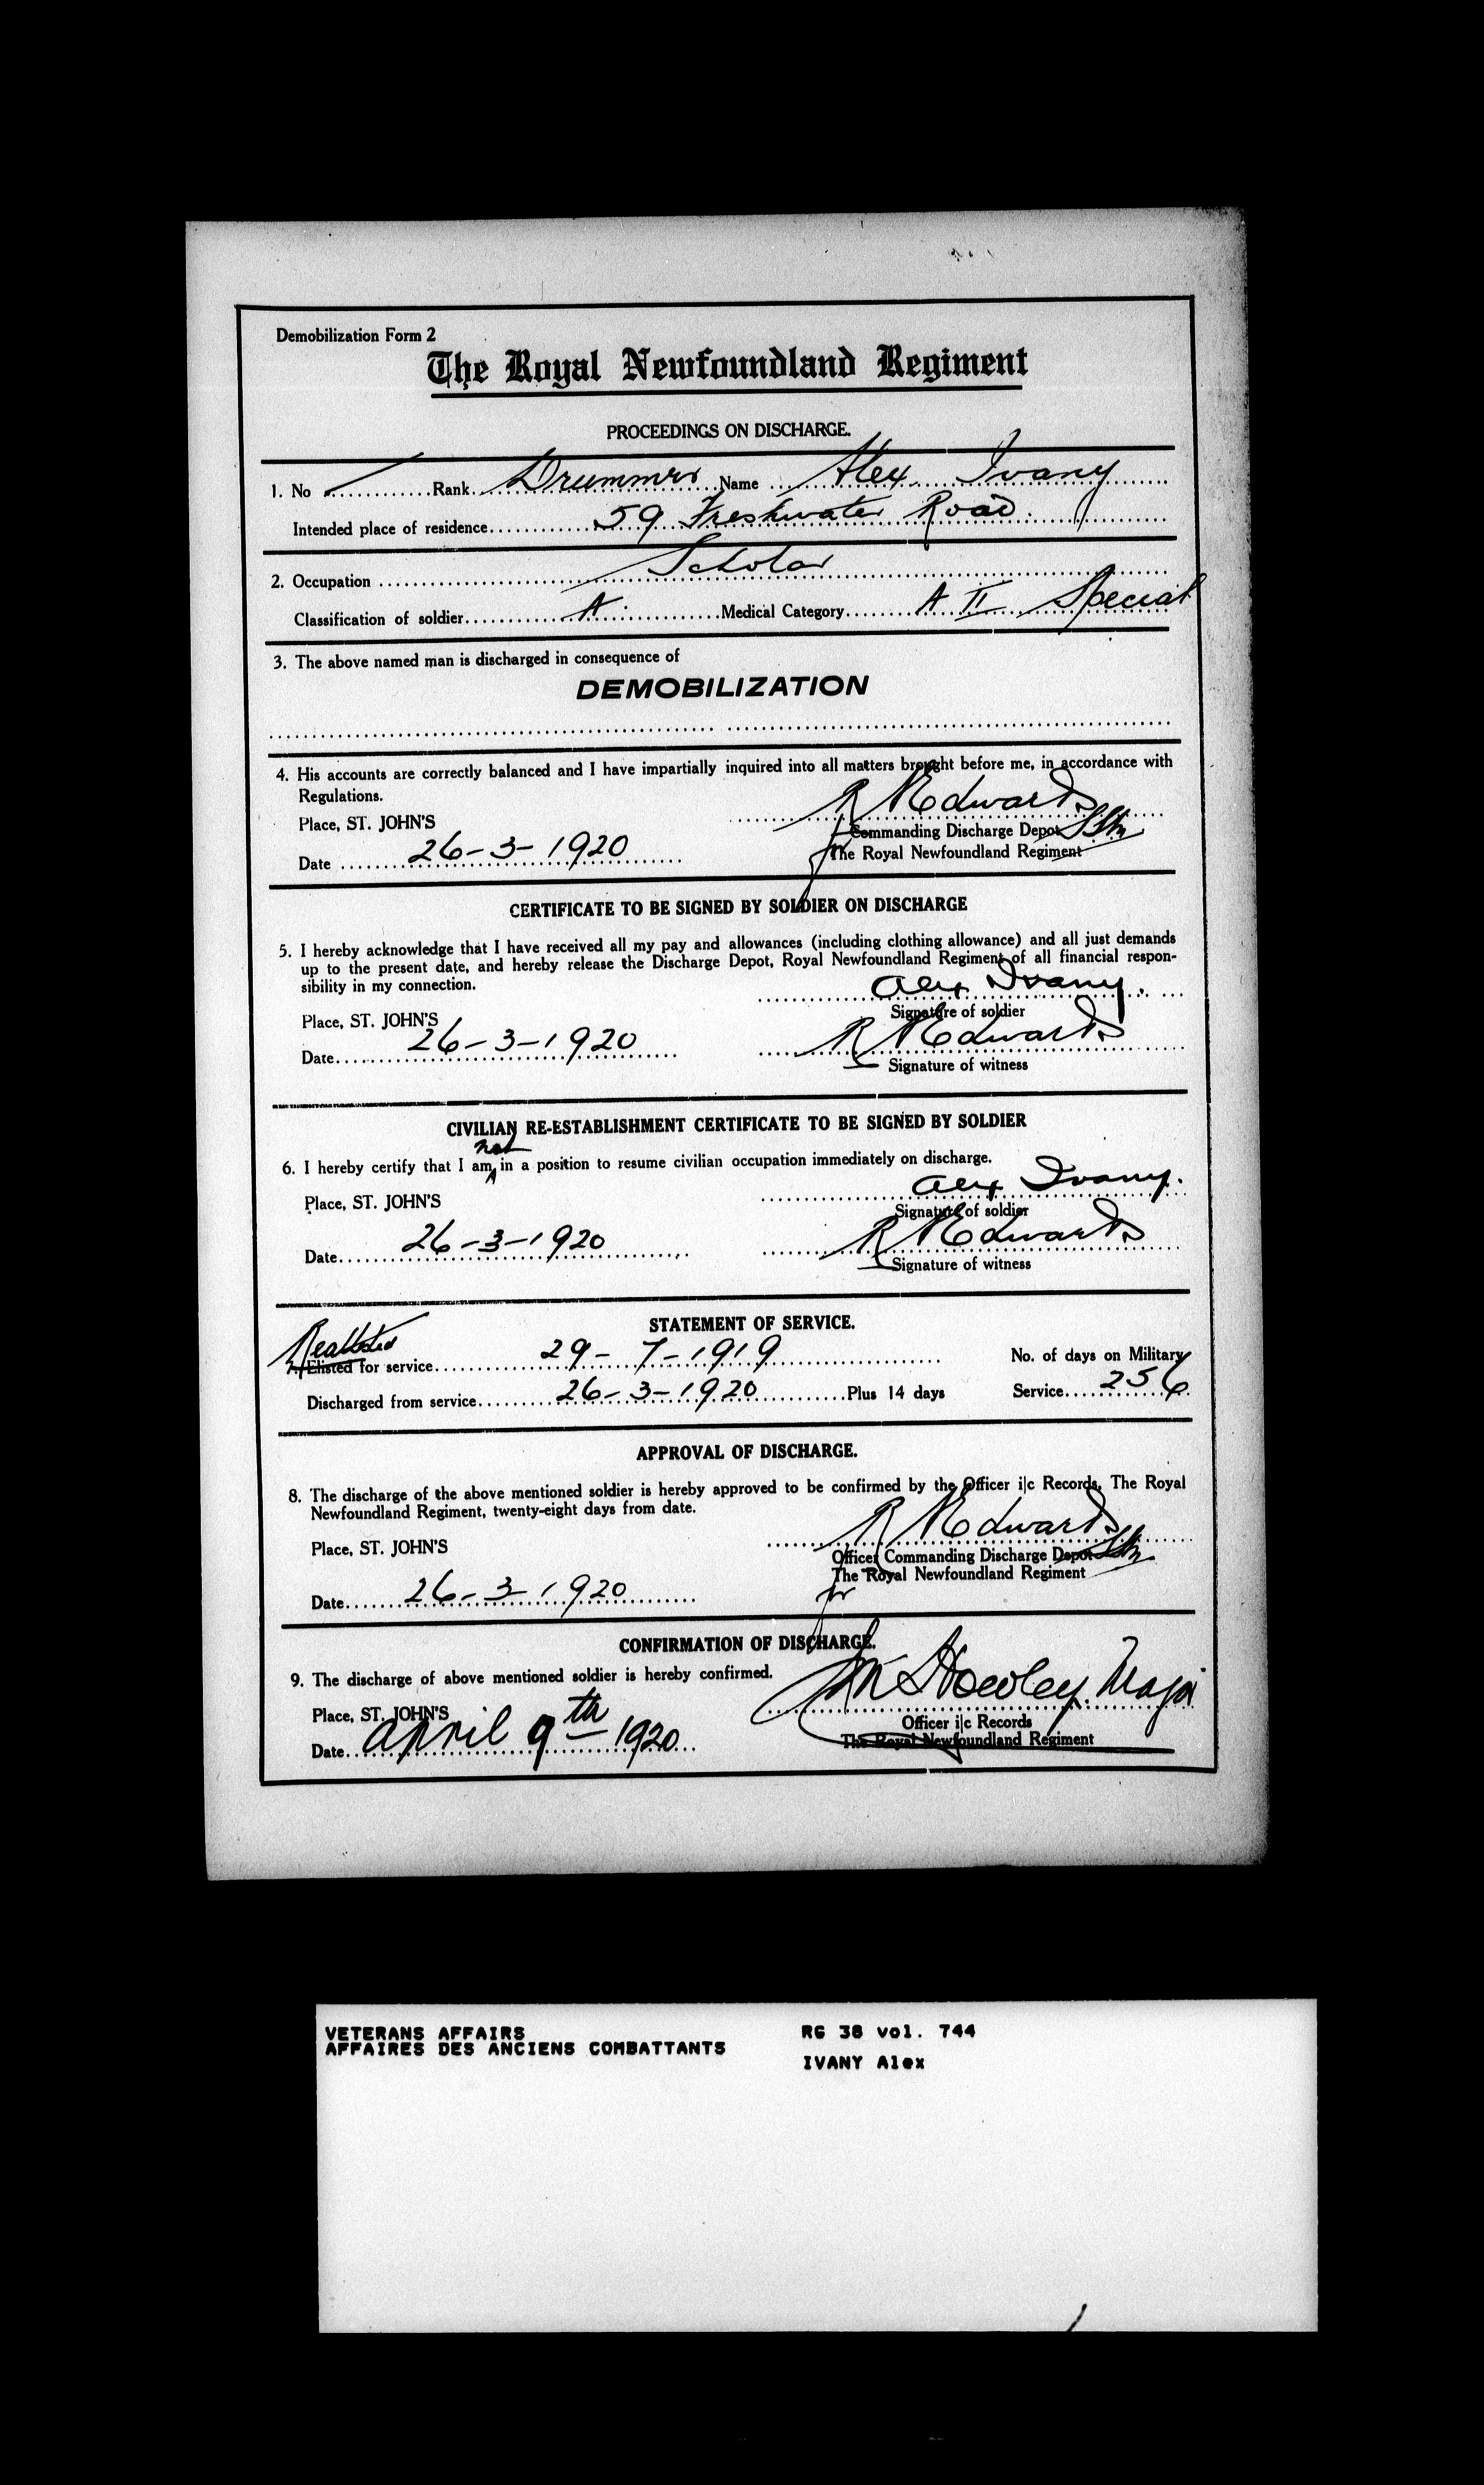 Demobilization Form 2
The Royal Newfoundland Regiment
PROCEEDINGS ON DISCHARGE.
1. No ............ Rank Drummer Name Alex Ivany
Intended place of residence 59 Freshwater Road.
2. Occupation Scholar
Classification of soldier A. Medical Category A II Special
3. The above named man is discharged in consequence of
DEMOBILIZATION
4. His accounts are correctly balanced and I have impartially inquired into all matters brought before me, in accordance with
Regulations.
R Edwards
Place, ST. JOHN'S
Commanding Discharge Depot
Date 26-3-1920
The Royal Newfoundland Regiment
CERTIFICATE TO BE SIGNED BY SOLDIER ON DISCHARGE
5. I hereby acknowledge that I have received all my pay and allowances (including clothing allowance) and all just demands
up to the present date, and hereby release the Discharge Depot, Royal Newfoundland Regiment of all financial respon-
sibility in my connection.
Alex Ivany.
Signature of soldier
Place, ST. JOHN'S
R Edwards
Date 26-3-1920
Signature of witness
CIVILIAN RE-ESTABLISHMENT CERTIFICATE TO BE SIGNED BY SOLDIER
6. I hereby certify that I am not in a position to resume civilian occupation immediately on discharge.
Alex Ivany.
Place, ST. JOHN'S
Signature of soldier
R Edwards
Date 26-3-1920
Signature of witness
STATEMENT OF SERVICE.
Reattested
7. Elisted for service 29-7-1919 No. of days on Military
Discharged from service 26-3-1920 Plus 14 days Service 256
APPROVAL OF DISCHARGE.
8. The discharge of the above mentioned soldier is hereby approved to be confirmed by the Officer i|c Records, The Royal
Newfoundland Regiment, twenty-eight days from date.
R Edwards
Place, ST. JOHN'S
Officer Commanding Discharge Depot
The Royal Newfoundland Regiment
Date 26-3-1920
for
CONFIRMATION OF DISCHARGE.
9. The discharge of above mentioned soldier is hereby confirmed.
Howley Major
Place, ST. JOHN'S
Officer i|c Records
Date April 9th 1920
The Royal Newfoundland Regiment
VETERANS AFFAIRS RG 38 vol. 744
AFFAIRES DES ANCIENS COMBATTANTS
IVANY Alex